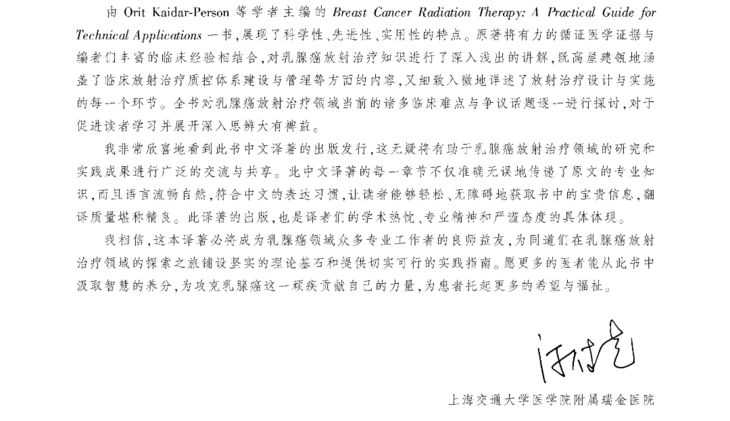 由 Orit Kaidar-Person 等学者主编的 Breast Cancer Radiation Therapy: A Practical Guide for
Technical Applications 一书,展现了科学性、先进性、实用性的特点。原著将有力的循证医学证据与
编者们丰富的临床经验相结合,对乳腺癌放射治疗知识进行了深入浅出的讲解,既高屋建瓴地涵
盖了临床放射治疗质控体系建设与管理等方面的内容,又细致入微地详述了放射治疗设计与实施
的每一个环节。全书对乳腺癌放射治疗领域当前的诸多临床难点与争议话题逐一进行探讨,对于
促进读者学习并展开深入思辨大有裨益。
我非常欣喜地看到此书中文译著的出版发行,这无疑将有助于乳腺癌放射治疗领域的研究和
实践成果进行广泛的交流与共享。此中文译著的每一章节不仅准确无误地传递了原文的专业知
识,而且语言流畅自然,符合中文的表达习惯,让读者能够轻松、无障碍地获取书中的宝贵信息,翻
译质量堪称精良。此译著的出版,也是译者们的学术热忱、专业精神和严谨态度的具体体现。
我相信,这本译著必将成为乳腺癌领域众多专业工作者的良师益友,为同道们在乳腺癌放射
治疗领域的探索之旅铺设坚实的理论基石和提供切实可行的实践指南。愿更多的医者能从此书中
汲取智慧的养分,为攻克乳腺癌这一顽疾贡献自己的力量,为患者托起更多的希望与福祉。
上海交通大学医学院附属瑞金医院